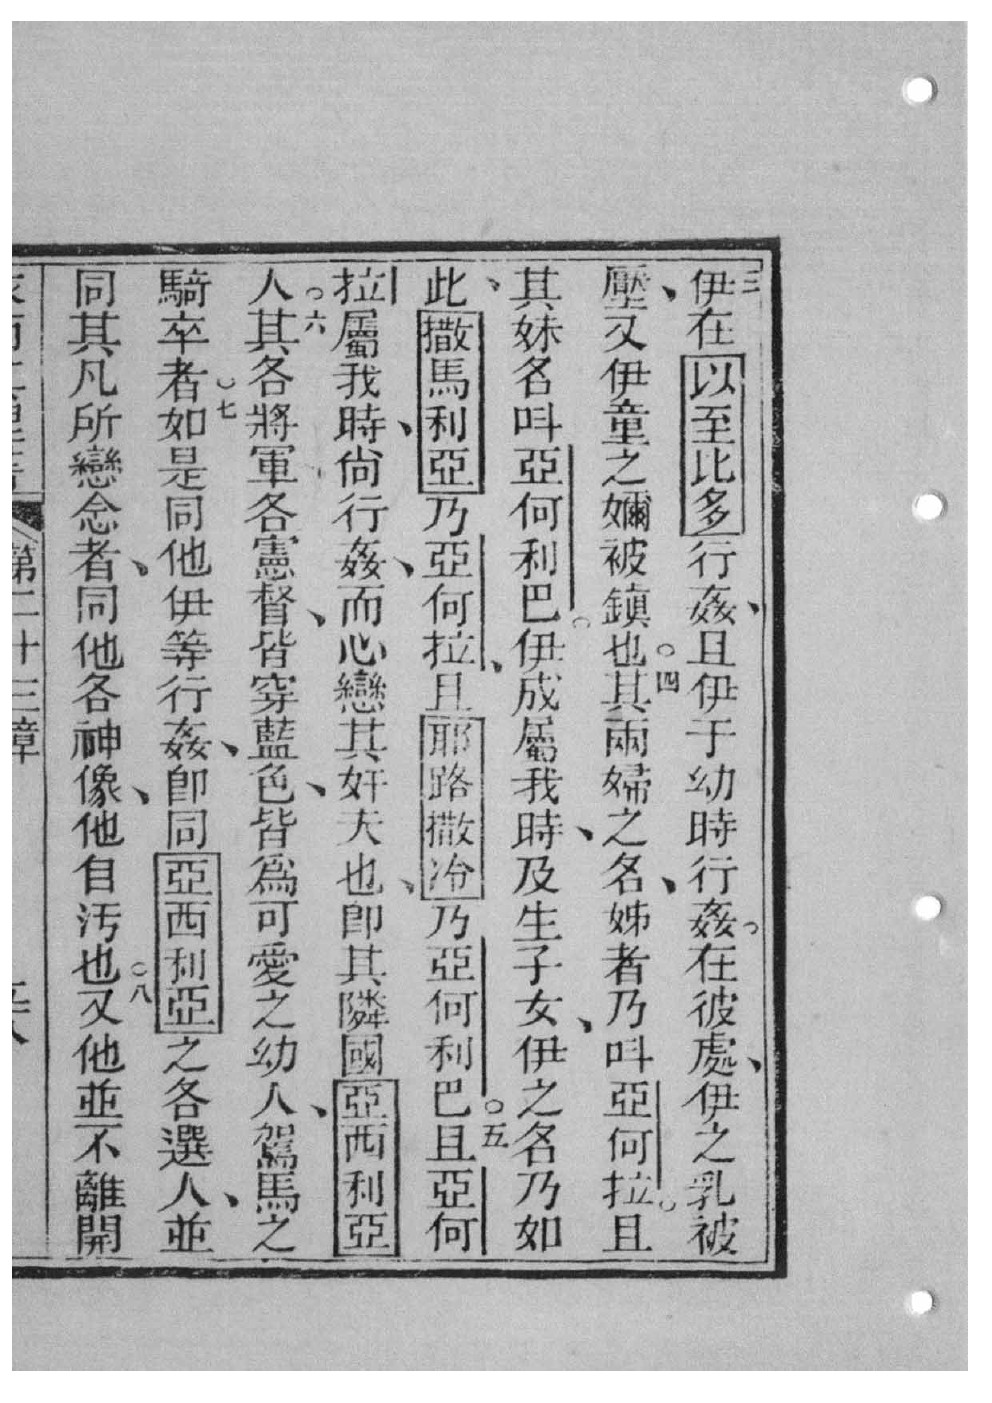 三伊在以至比多行姦、且伊于幼時行姦。在彼處、伊之乳被
壓、又伊童之嬭被鎮也。四其兩婦之名、姊者乃叫亞何拉。且
其妹名叫亞何利巴。伊成屬我時、及生子女、伊之名乃如
此、撒馬利亞乃亞何拉、且耶路撒冷乃亞何利巴。五且亞何
拉屬我時、尙行姦、而心戀其奸夫也、卽其隣國亞西利亞
人。六其各將軍各憲督、皆穿藍色、皆爲可愛之幼人、駕馬之
騎卒者。七如是同他伊等行姦、卽同亞西利亞之各選人、並
同其凡所戀念者、同他各神像、他自汚也。八又他並不離開
第二十三章